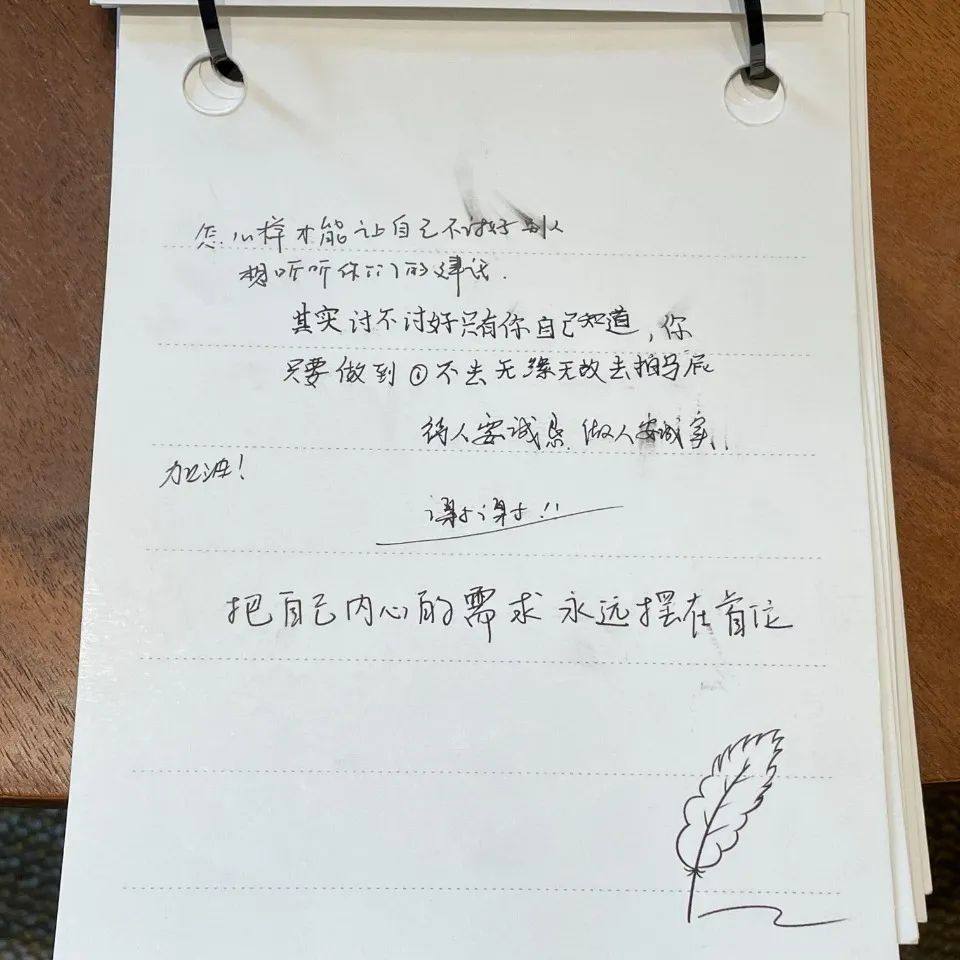 怎么样才能让自己不讨好别人
想听听你们的建议.
其实讨不讨好只有你自己知道,你
只要做到①不去无缘无故去拍马屁
待人要诚恳.做人要诚实.
加油!
谢谢!!
把自己内心的需求永远摆在首位